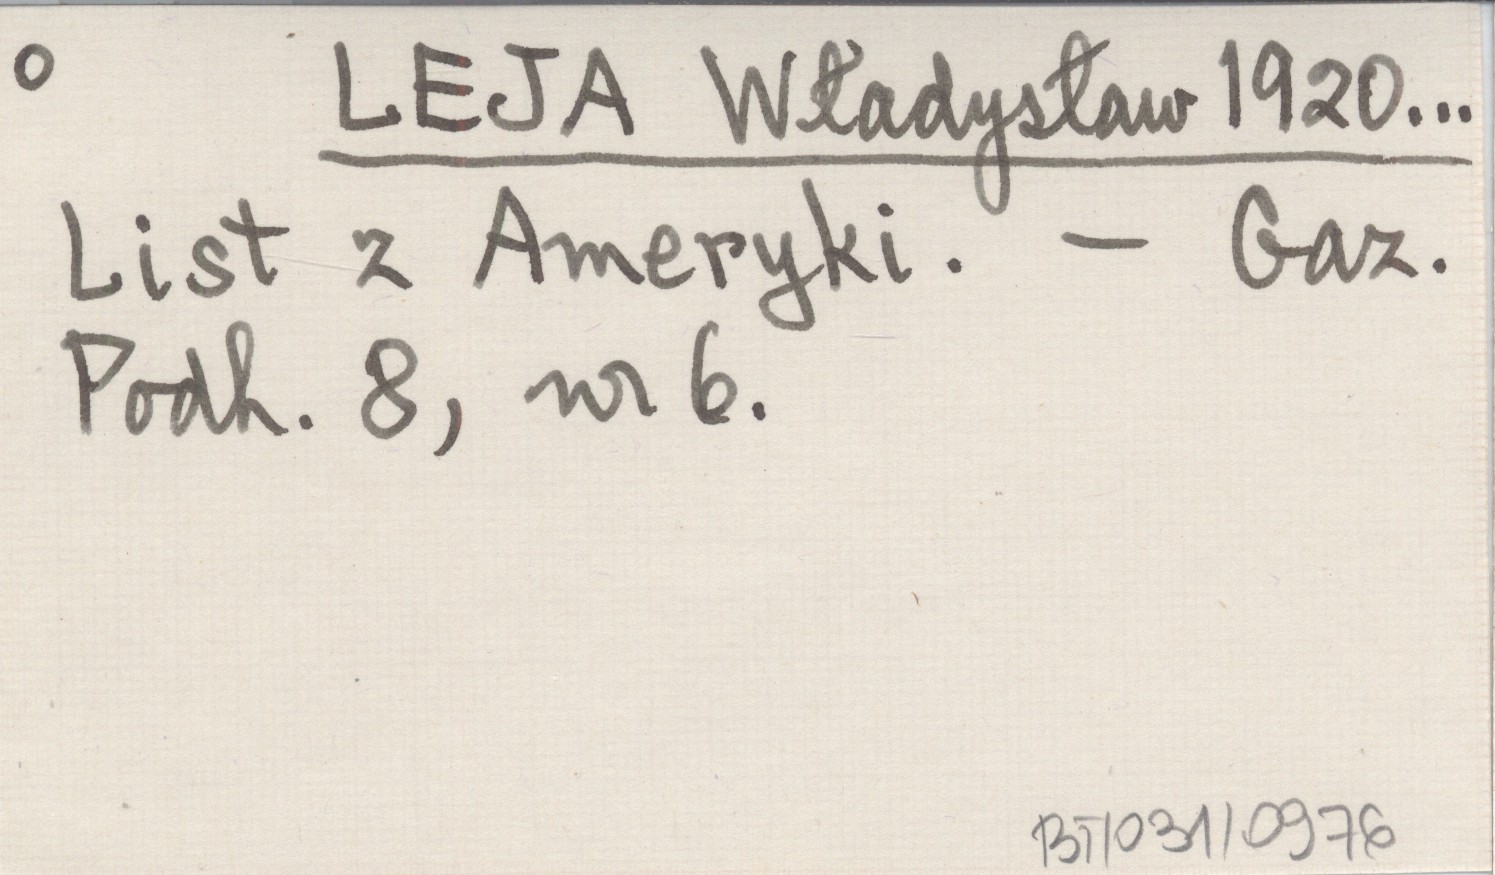 o LEJA Władysław 1920...
List z Ameryki. — Gaz.
Podh. 8, nr 6.
BT/031/0976